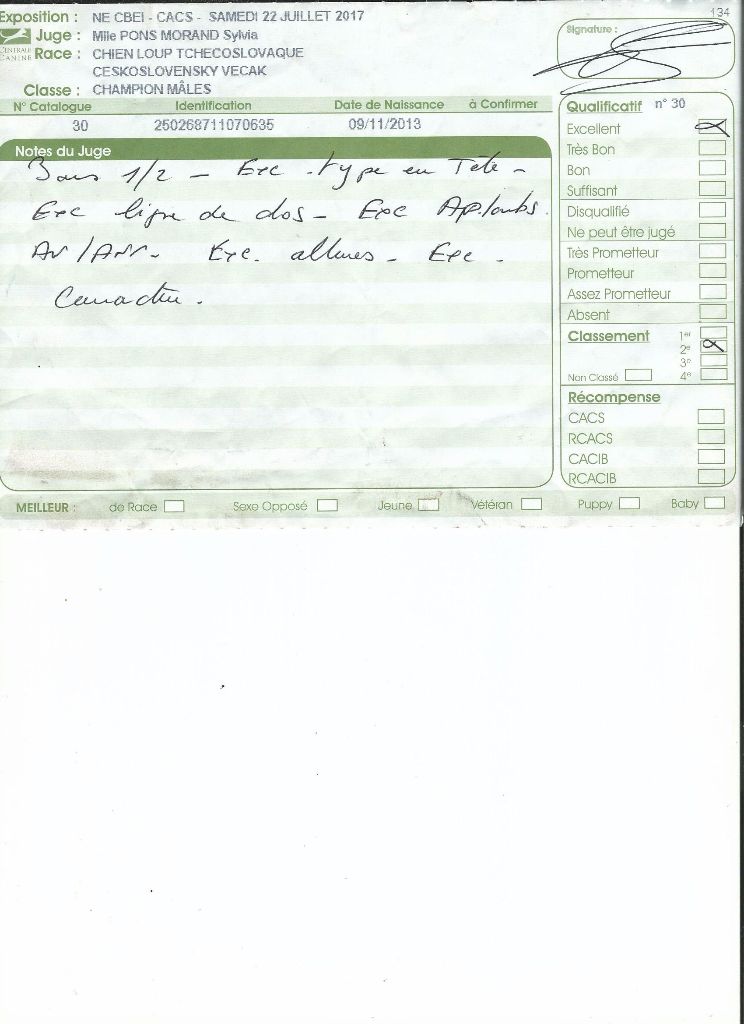 134
Exposition : NE CBEI - CACS - SAMEDI 22 JUILLET 2017
Juge : Mlle PONS MORAND Sylvia
CENTRALE CANINE
Race : CHIEN LOUP TCHECOSLOVAQUE
CESKOSLOVENSKY VECAK
Classe : CHAMPION MÂLES
Signature :
N° Catalogue Identification Date de Naissance à Confirmer
30 250268711070635 09/11/2013
Notes du Juge
3 ans 1/2 - Exc type en Tête -
Exc ligne de dos - Exc Aplombs.
AV/Arr - Exc. allures - Exc.
Caractère.
Qualificatif n° 30
Excellent
Très Bon
Bon
Suffisant
Disqualifié
Ne peut être jugé
Très Prometteur
Prometteur
Assez Prometteur
Absent
Classement 1er
2e
3e
Non Classé 4e
Récompense
CACS
RCACS
CACIB
RCACIB
MEILLEUR : de Race Sexe Opposé Jeune Vétéran Puppy Baby